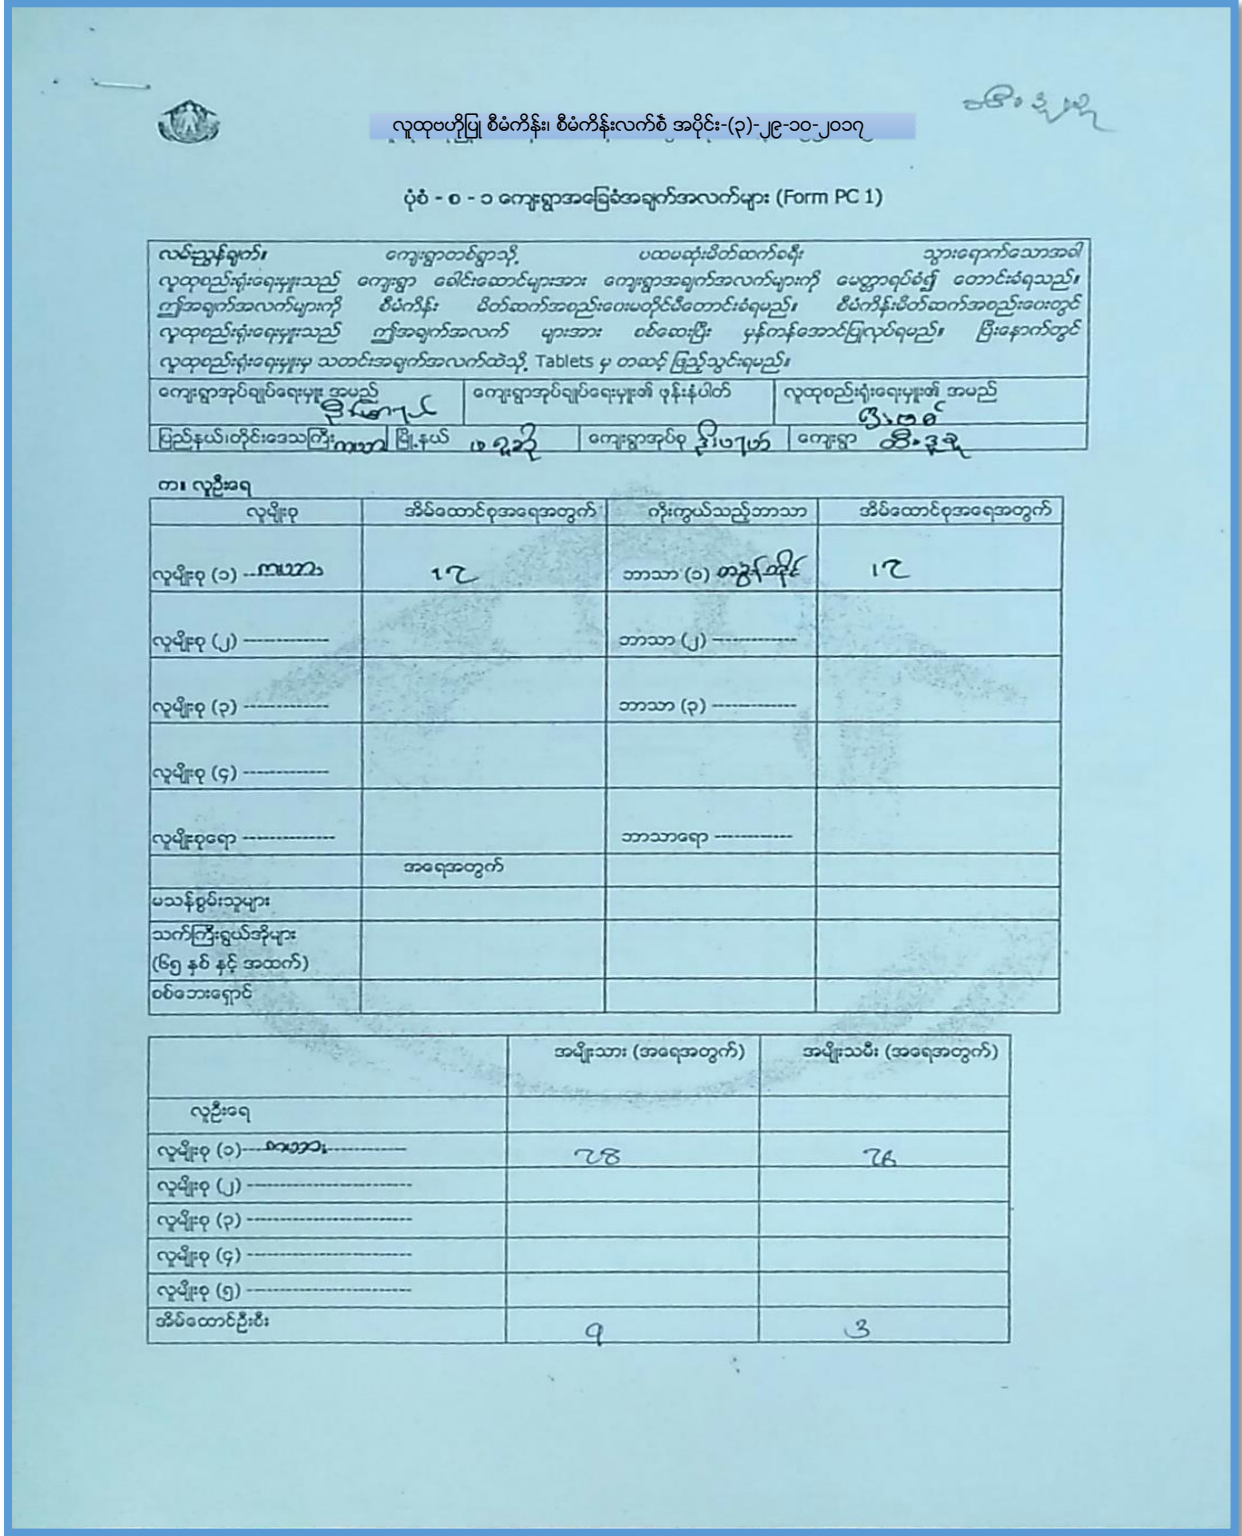 လူထုဗဟိုပြု စီမံကိန်း၊ စီမံကိန်းလက်စွဲ အပိုင်း-(၃)-၂၉-၁၀-၂၀၁၇
ပုံစံ - စ - ၁ ကျေးရွာအခြေခံအချက်အလက်များ (Form PC 1)
လမ်းညွှန်ချက်။ ကျေးရွာတစ်ရွာသို့ ပထမဆုံးမိတ်ဆက်ခရီး သွားရောက်သောအခါ
လူထုစည်းရုံးရေးမှူးသည် ကျေးရွာ ခေါင်းဆောင်များအား ကျေးရွာအချက်အလက်များကို မေတ္တာရပ်ခံ၍ တောင်းခံရသည်။
ဤအချက်အလက်များကို စီမံကိန်း မိတ်ဆက်အစည်းဝေးမတိုင်မီတောင်းခံရမည်။ စီမံကိန်းမိတ်ဆက်အစည်းဝေးတွင်
လူထုစည်းရုံးရေးမှူးသည် ဤအချက်အလက် များအား စစ်ဆေးပြီး မှန်ကန်အောင်ပြုလုပ်ရမည်။ ပြီးနောက်တွင်
လူထုစည်းရုံးရေးမှူးမှ သတင်းအချက်အလက်ထဲသို့ Tablets မှ တဆင့် ဖြည့်သွင်းရမည်။
ကျေးရွာအုပ်ချုပ်ရေးမှူး အမည် ကျေးရွာအုပ်ချုပ်ရေးမှူး၏ ဖုန်းနံပါတ် လူထုစည်းရုံးရေးမှူး၏ အမည်
ပြည်နယ်၊တိုင်းဒေသကြီး ကယား မြို့နယ် ဖရူဆို ကျေးရွာအုပ်စု ကျေးရွာ
က။ လူဦးရေ
လူမျိုးစု အိမ်ထောင်စုအရေအတွက် ကိုးကွယ်သည့်ဘာသာ အိမ်ထောင်စုအရေအတွက်
လူမျိုးစု (၁) --ကယား 12 ဘာသာ (၁) တခွန်တိုင် 12
လူမျိုးစု (၂) ------------- ဘာသာ (၂) -------------
လူမျိုးစု (၃) ------------- ဘာသာ (၃) -------------
လူမျိုးစု (၄) -------------
လူမျိုးစုရော -------------- ဘာသာရော ------------
အရေအတွက်
မသန်စွမ်းသူများ
သက်ကြီးရွယ်အိုများ
(၆၅ နှစ် နှင့် အထက်)
စစ်ဘေးရှောင်
အမျိုးသား (အရေအတွက်) အမျိုးသမီး (အရေအတွက်)
လူဦးရေ
လူမျိုးစု (၁)----ကယား------------ 28 26
လူမျိုးစု (၂) -------------------------
လူမျိုးစု (၃) -------------------------
လူမျိုးစု (၄) -------------------------
လူမျိုးစု (၅) -------------------------
အိမ်ထောင်ဦးစီး 9 3